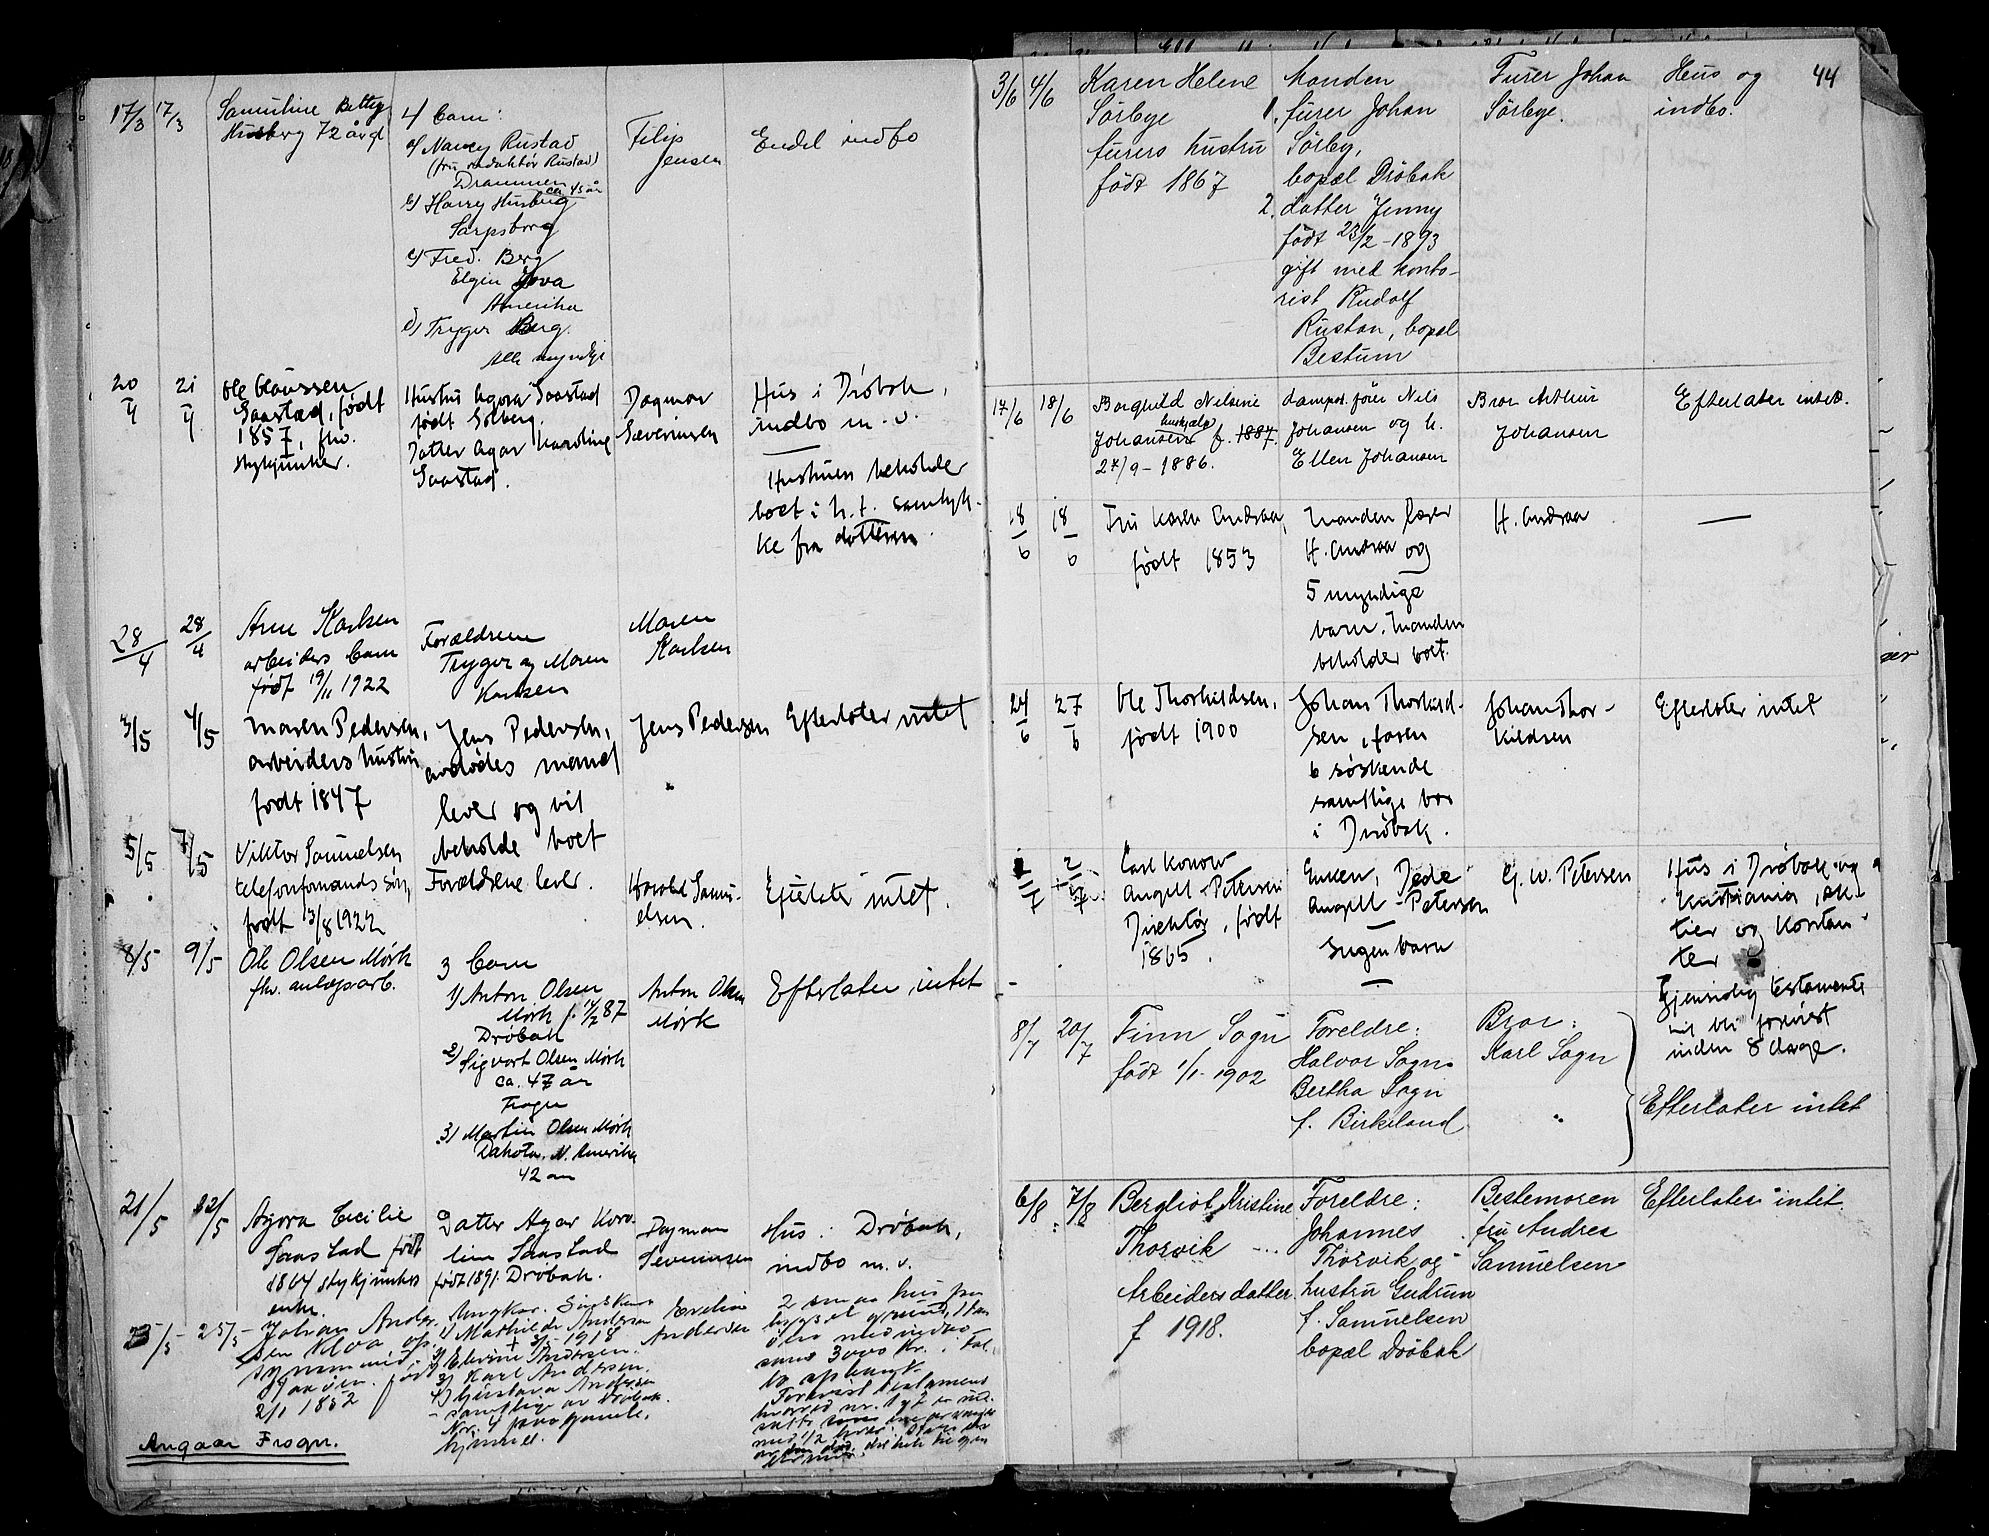 17/3 17/3 Samuline Betty
Husberg 72 år gl
4 barn:
a) Nancy Rustad
(fru redaktör Rustad)
Drammen
b) Harry Husberg ca 45 år
Sarpsborg
c) Fred. Berg
Elgin Iova
Amerika
d) Trygve Berg.
Alle myndige
Filip
Jensen
Endel indbo
20/4 21/4 Ole Claussen
Saastad, født
1857, fhv.
stykjunker.
Hustru Agora Saastad
født Solberg.
Datter Agar Karoline
Saastad.
Dagmar
Severinsen
Hus i Drøbak,
indbo m.v.
Hustruen beholder
boet i h.t. samtyk-
ke fra datteren.
28/4 28/4 Arne Karlsen
arbeiders barn
født 19/11 1922
Forældrene
Trygve og Maren
Karlsen
Maren
Karlsen
3/5 4/5 Maren Pedersen,
arbeiders hustru
født 1847
Jens Pedersen,
avdødes mand
lever og vil
beholde boet
Jens Pedersen
Efterlater intet
5/5 7/5 Viktor Samuelsen
telefonformands søn,
født 13/8 1922
Forældrene lever.
Harald Samu-
elsen.
Efterlater intet.
8/5 9/5 Ole Olsen Mørk
fhv. anlægsarb.
3 barn
1) Anton Olsen
Mørk f. 14/7 87
Drøbak
2) Sigvart Olsen Mørk
ca. 47 år
Frogn
3) Martin Olsen Mørk
Dakota, N. Amerika
42 år
Anton Olsen
Mørk
Efterlater intet
21/5 22/5 Agora Cecilie
Saastad født
1864 stykjunkers
enke.
Datter Agar Karo-
line Saastad
født 1891. Drøbak.
Dagmar
Severinsen
Hus i Drøbak,
indbo m.v.
25/5 Johan Ander-
sen
født
2/1 1852
1) Mathilde Andersen
1918
2) Elvine Andersen.
3) Karl Andersen.
4) Gustava Andersen
- samtlige av Drøbak.
Nr. 4 paa gamle-
hjemmet.
Eveline
Andersen
2 smaa hus paa
bygsel grund,
med indbo
3000 kr.
Angaar Frogn.
44
3/6 4/6 Karen Helene
Sörbye
furers hustru
født 1867
Manden
1. furer Johan
Sörby,
bopæl Dröbak
2. datter Jenny
født 23/2-1893
gift med konto-
rist Rudolf
Rustan, bopæl
Bestum
Furer Johan
Sörbye.
Hus og
indbo.
17/6 18/6 Borghild Nelsine
Johansen f. 1887.
24/9-1886.
dampsk.fører Nils
Johansen og h.
Ellen Johansen
Bror Arthur
Johansen
Efterlater intet.
18/6 18/6 Fru Karen Andraa,
født 1853
Manden
H. Andraa og
5 myndige
barn. Manden
beholder boet.
H. Andraa
—
24/6 27/6 Ole Thorkildsen,
født 1900
Johan Thorkild-
sen, faren
6 søskende
samtlige bor
i Drøbak.
Johan Thor-
kildsen
Efterlater intet
1/7 2/7 Carl Konow
Angell-Petersen
Direktør, født
1865.
Enken,
Angell-Petersen
Ingen barn
—
G. W. Petersen
Hus i Drøbak og
Kristiania, ak-
tier og kontan-
ter
Gjensidig testamente
vil bli forevist
inden 8 dage.
8/7 20/7 Finn Sogn
født 1/1-1902
Foreldre:
Halvor Sogn
Bertha Sogn
f. Birkeland
Bror:
Karl Sogn
"
Efterlater intet
6/8 7/8 Bergliot Kristine
Thorvik
Arbeiders datter
f 1918.
Foreldre:
Johannes
Thorvik og
hustru Gudrun
f. Samuelsen
bopæl Dröbak
Bestemoren
fru Andrea
Samuelsen
Efterlater intet.